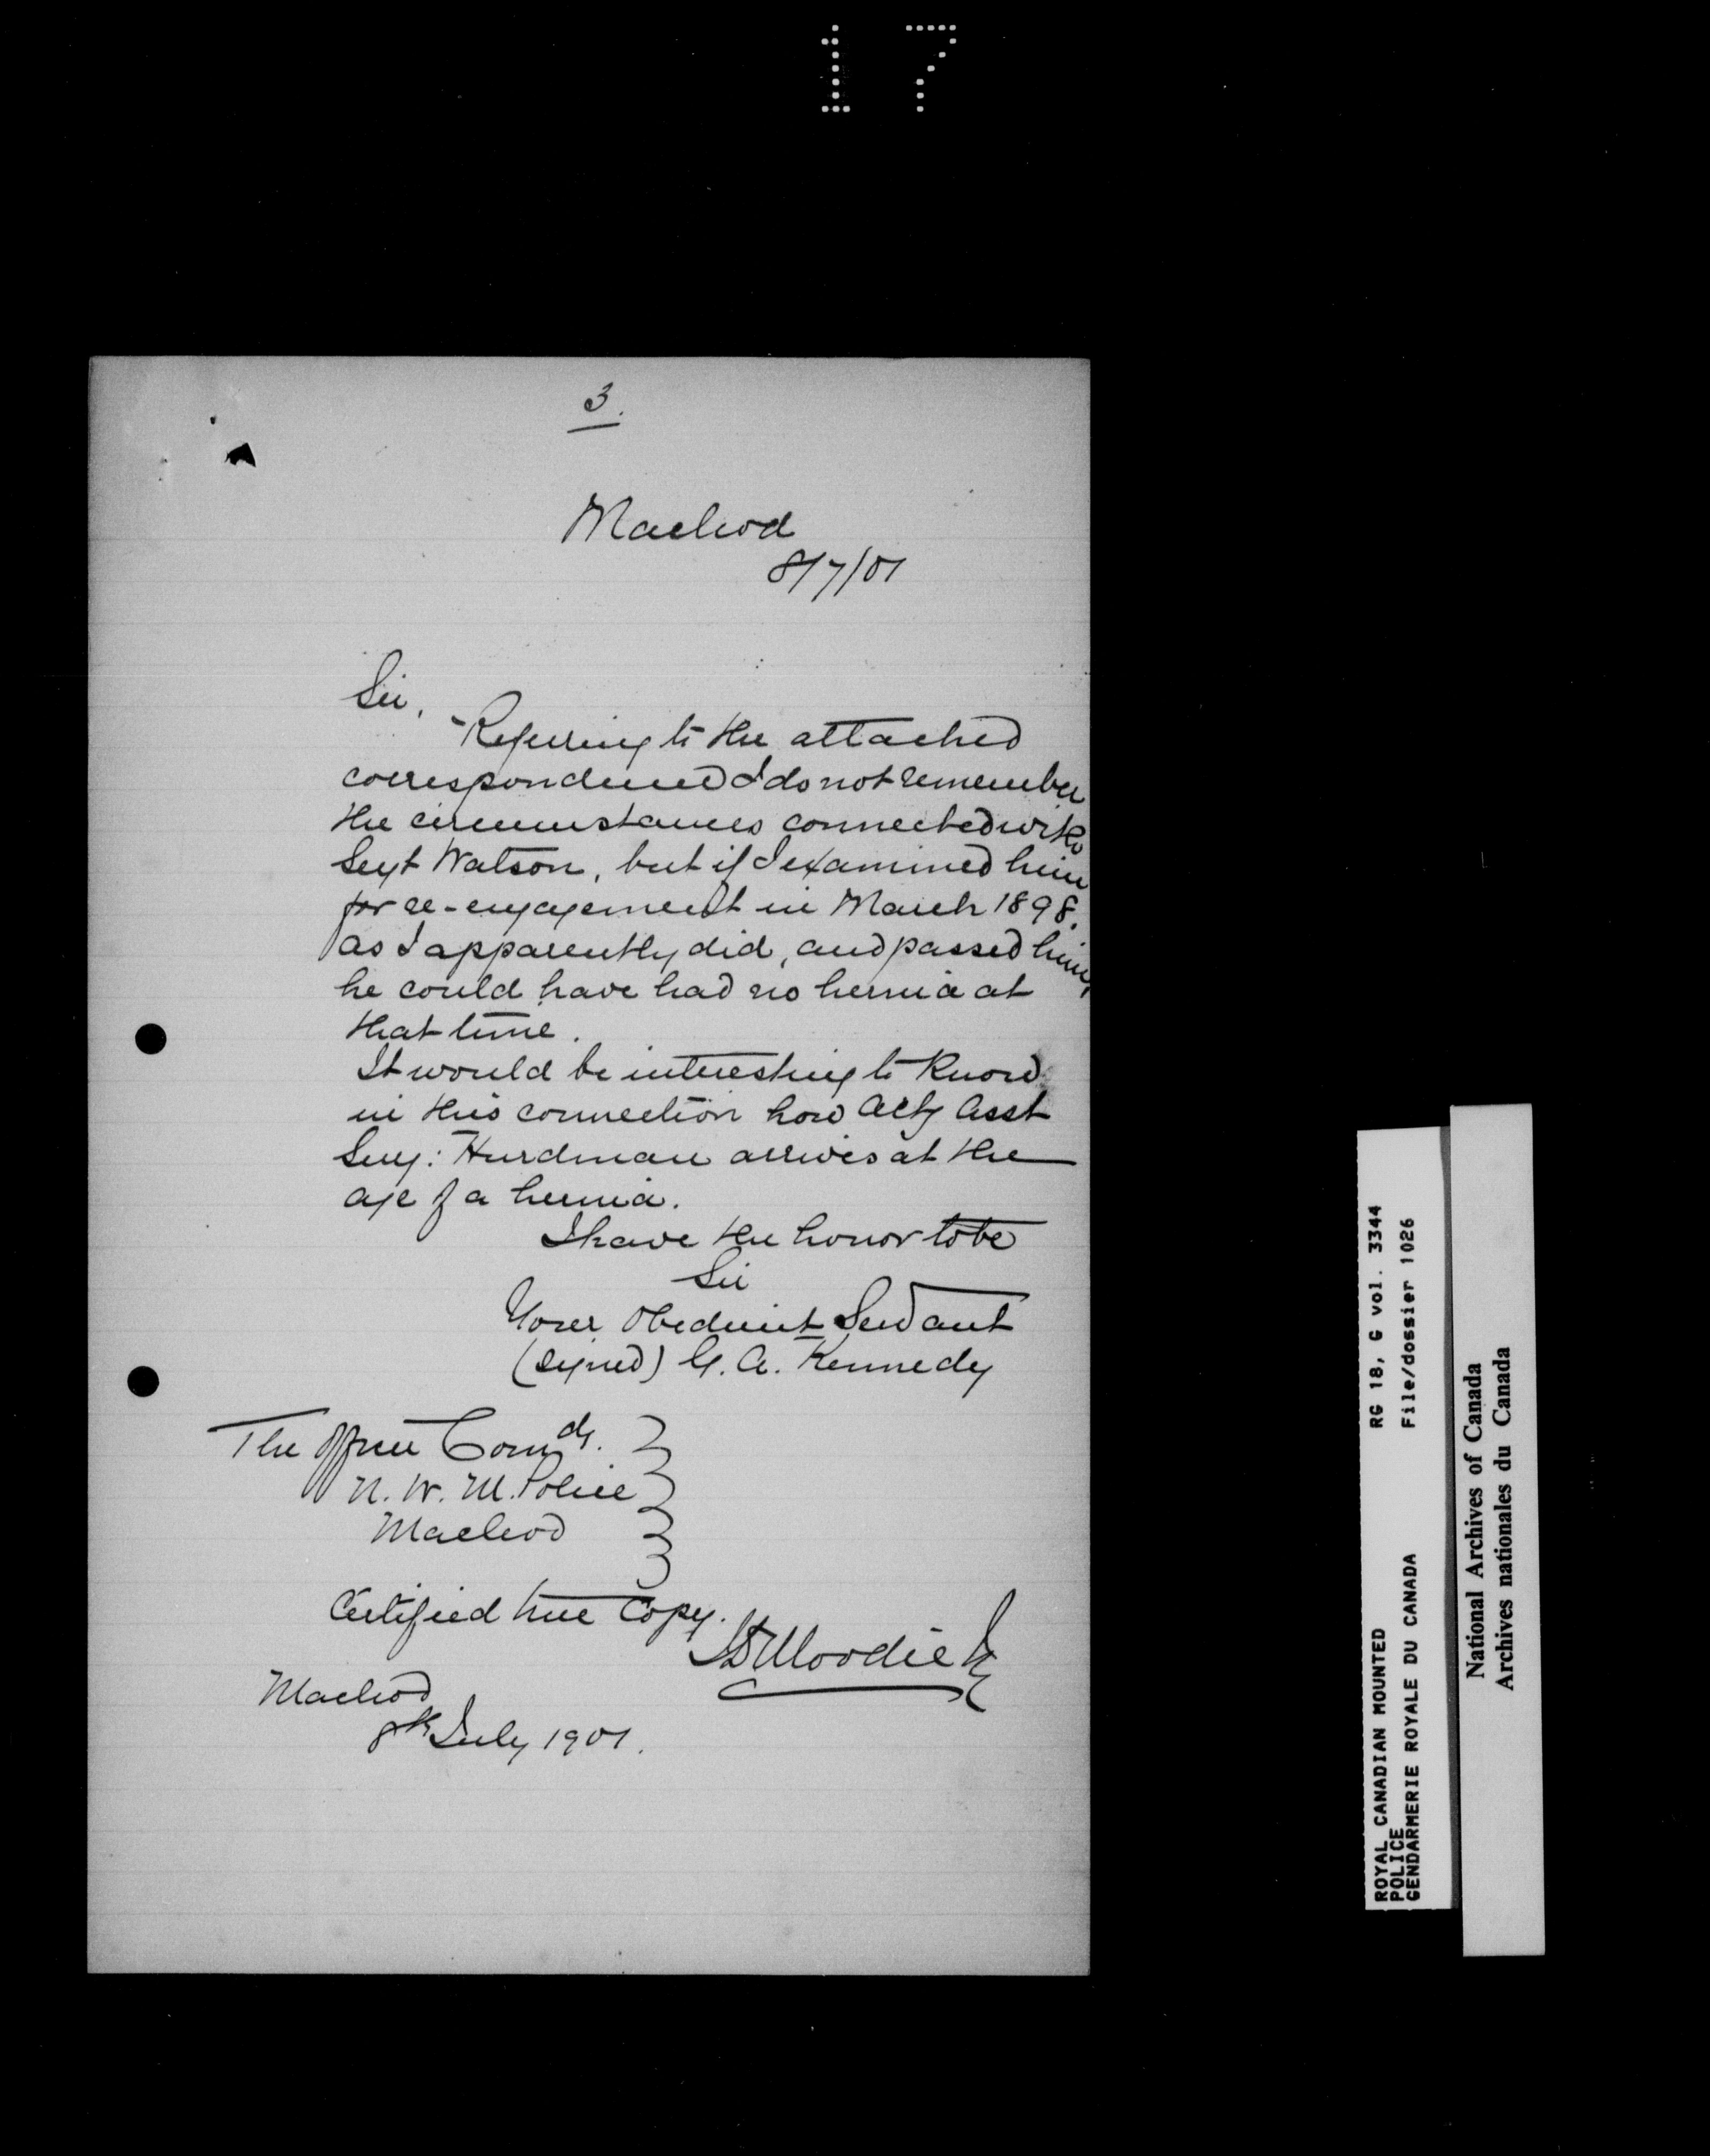 17
3.
Macleod
8/7/01
Sir,
Referring to the attached
correspondence I do not remember
the circumstances connected with
Sergt Watson, but if I examined him
for re-engagement in March 1898,
as I apparently did, and passed him,
he could have had no hernia at
that time.
It would be interesting to know
in this connection how Actg Asst
Surg: Hurdman arrives at the
age of a hernia.
I have the honor to be
Sir
Your Obedient Servant
(signed) G. A. Kennedy
The Officer Comdg.
N. W. M. Police
Macleod
Certified true Copy.
JD Moodie
Macleod
8th July 1901.
ROYAL CANADIAN MOUNTED
POLICE
GENDARMERIE ROYALE DU CANADA
RG 18, G vol. 3344
File/dossier 1026
National Archives of Canada
Archives nationales du Canada